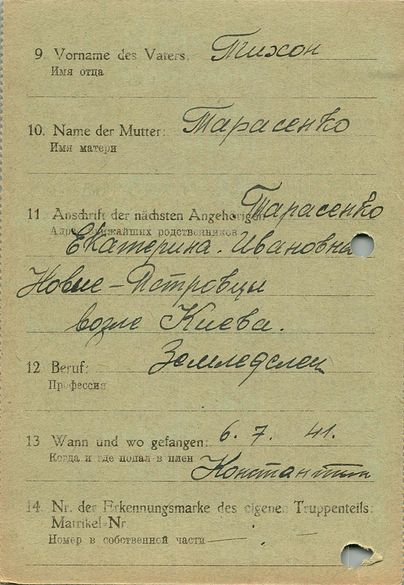 9. Vorname des Vaters: Тихон
Имя отца
10. Name der Mutter: Тарасенко
Имя матери
11 Anschrift der nächsten Angehörigen: Тарасенко
Адрес ближайших родственников
Екатерина. Ивановна
Новые – Петровцы
возле Киева.
12 Beruf: Земледелец
Профессия
13 Wann und wo gefangen: 6. 7. 41.
Когда и где попал в плен
Константин
14. Nr. der Erkennungsmarke des eigenen Truppenteils:
Matrikel-Nr
Номер в собственной части